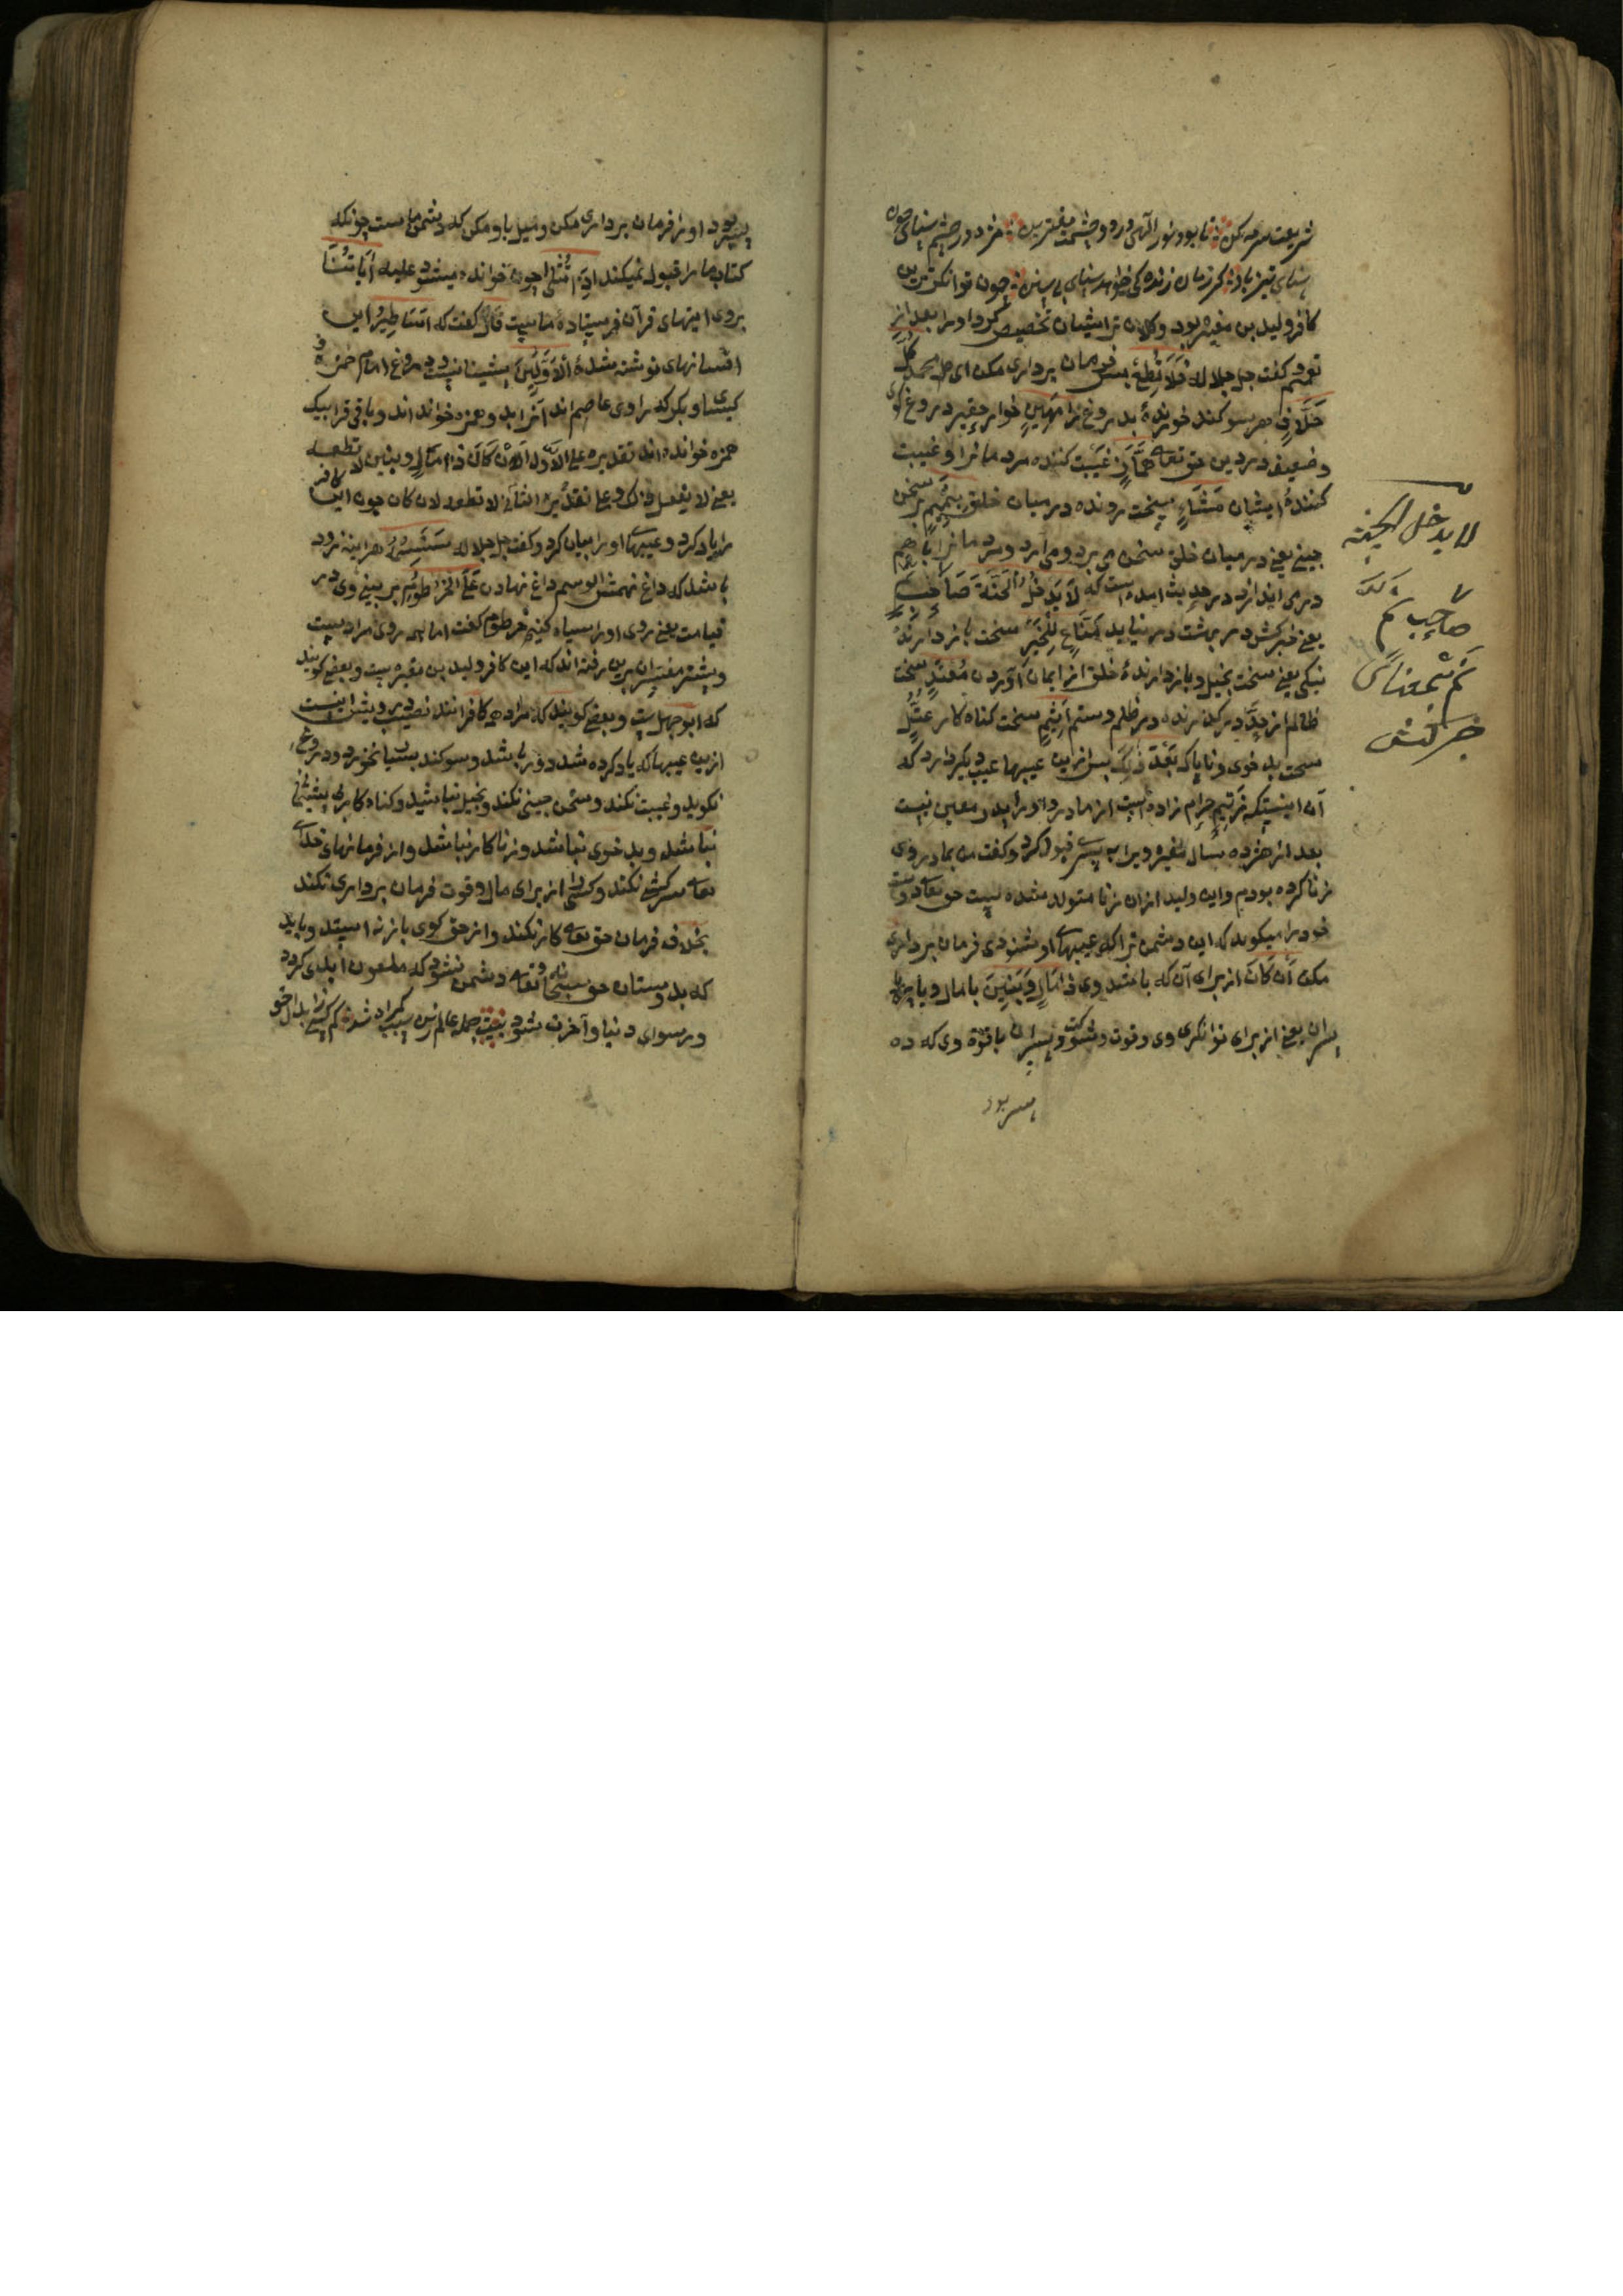 شریعت سرمه کن تا بود نور الهی در دو چشمت مقترین
کافر ولید بن مغیره بود وکلان ترایشان تخصیص کرد اورا بعد از
تعمیم گفت جل جلاله فَلَا تُطِعْ پس فرمان برداری مکن ای محمد کُلَّ
حَلَّافٍ هر سوکند خورندهٔ بدروغ را مَهِينٍ خوار حقیر دروغ کوی
وضعیف در دین حق تعالی هَمَّازٍ غیبت کننده مردمانرا وغیبت
کنندهٔ ایشان مَشَّاءٍ سخت رونده درمیان خلق بِنَمِيمٍ بسخن
چینی یعنی درمیان خلق سخن می برد ومی آرد ومردمانرا باهم
در می اندازد در حدیث آمده است که لَا يَدْخُلُ الْجَنَّةَ صَاحِبُ
یعنی خبرکش در بهشت در نیاید مَنَّاعٍ لِلْخَيْرِ سخت باز دارندهٔ
نیکی یعنی سخت بخیل وباز دارندهٔ خلق از ایمان آوردن مُعْتَدٍ سخت
ظالم از حد در گذرنده در ظلم وستم أَثِيمٍ سخت کناه کار عُتُلٍّ
سخت بد خوی وناپاک بَعْدَ ذَلِكَ پس ازین عیبها عیب دیکر دارد که
آن اینست که زَنِيمٍ حرام زاده است از مادر واورا پدر معین نیست
بعد از هژده سال مغیره ویرا به پسری قبول کرد وکفت من بمادر وی
زنا کرده بودم واین ولید ازان زنا متولد شده است حق تعالی دوست
خودرا میکوید که این دشمن ترا که عیبهای او شنودی فرمان برداری
مکن أَنْ كَانَ از برای آن که باشد وی ذَا مَالٍ وَبَنِينَ با مال وبا
پسران یعنی از برای توانکری وی وقوت وشوکت وپسران باقوة وی که ده
پسر بود
لا یدخل الجنة
صاحب نم
نم بمعنای
خبر کش
پسر بود اورا فرمان برداری مکن ومیل باو مکن که دشمن ماست چونکه
کتاب مارا قبول نمیکند إِذَا تُتْلَى چون خوانده میشود عَلَيْهِ آيَاتُنَا
بروی ایتهای قرآن فرستادهٔ ماست قَالَ کفت که أَسَاطِيرُ این
افسانهای نوشته شدهٔ الْأَوَّلِينَ پیشینانست دروغ امام حمزه و
کسائی وبکر که راوی عاصم اند آنرا بدو همزه خوانده اند وباقی قرا بیک
همزه خوانده اند تقدیره علی الاول أَأَنْ كَانَ ذَا مَالٍ وبنین لا تطعه
یعنی لا یفعل ذلک وعلی تقدیره الثانی لا تطعه لان کان چون این کافر
را یاد کرد وعیبهای اورا بیان کرد وکفت جل جلاله سَنَسِمُهُ هراینه زود
باشد که داغ نهمش الوسم داغ نهادن عَلَى الْخُرْطُومِ بر بینی وی در
قیامت یعنی روی اورا سیاه کنیم خرطوم کفت اما همه روی مراد است
وبیشتر مفسران برین رفته اند که این کافر ولید بن مغیره است وبعضی کویند
که ابوجهل است وبعضی کویند که مراد همه کافرانند نصیب درویش اینست
ازین عیبها که یاد کرده شد دور باشد وسوکند بسیار نخورد ودروغ
نکوید وغیبت نکند وسخن چینی نکند وبخیل نباشد وکناه کار
نباشد وبد خوی نباشد وزنا کار نباشد واز فرمانهای خدای
تعالی سرکشی نکند وکسی را از برای مال وقوت فرمان برداری نکند
بخلاف فرمان حق تعالی کار نکند واز حق کوی باز نه ایستد وباید
که بدوستان حق سبحانه وتعالی دشمن نشود که ملعون ابدی کردد
ورسوای دنیا وآخرت شود بیت جمله عالم زین سبب کمراه شد کم کسی ز ابدال حق